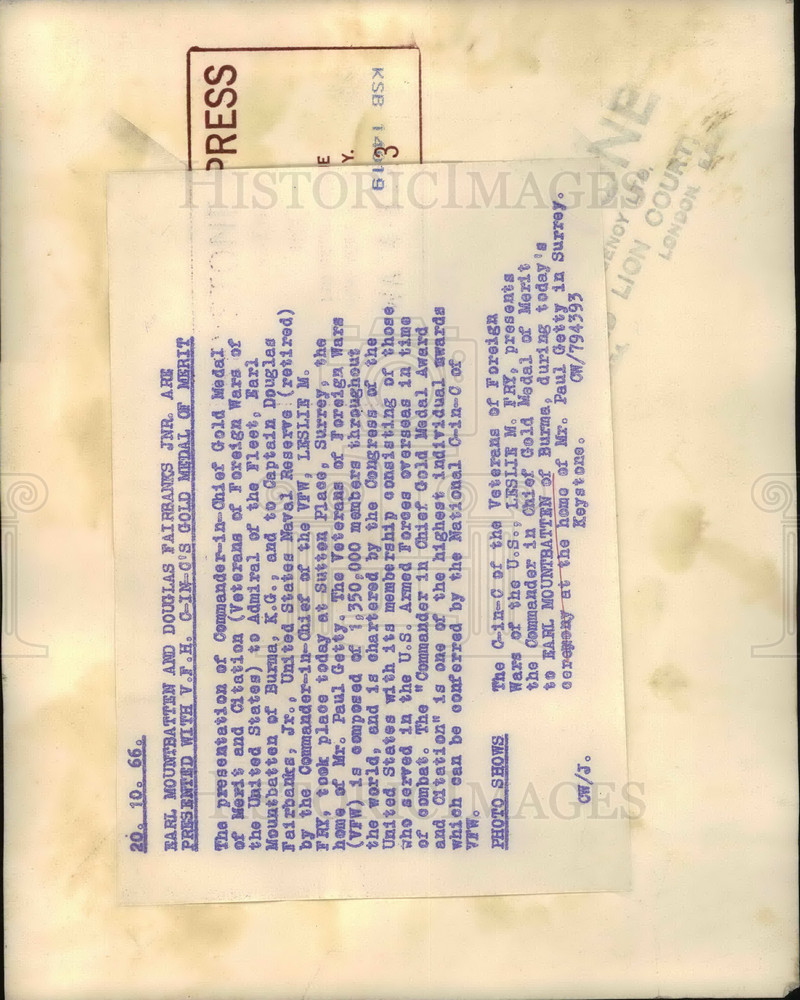 PRESS
E
Y.
3
KSB 14019
ONE
LTD.
LION COURT
LONDON E.C.
HISTORICIMAGES
20. 10. 66.
EARL MOUNTBATTEN AND DOUGLAS FAIRBANKS JNR. ARE
PRESENTED WITH V.F.H. C-IN-C'S GOLD MEDAL OF MERIT
The presentation of Commander-in-Chief Gold Medal
of Merit and Citation (Veterans of Foreign Wars of
the United States) to Admiral of the Fleet, Earl
Mountbatten of Burma, K.G., and to Captain Douglas
Fairbanks, Jr., United States Naval Reserve (retired)
by the Commander-in-Chief of the VFW, LESLIE M.
FRY, took place today at Sutton Place, Surrey, the
home of Mr. Paul Getty. The Veterans of Foreign Wars
(VFW) is composed of 1,350,000 members throughout
the world, and is chartered by the Congress of the
United States with its membership consisting of those
who served in the U.S. Armed Forces overseas in time
of combat. The "Commander in Chief Gold Medal Award
and Citation" is one of the highest individual awards
which can be conferred by the National C-in-C of
VFW.
PHOTO SHOWS The C-in-C of the Veterans of Foreign
Wars of the U.S., LESLIE M. FRY, presents
the Commander in Chief Gold Medal of Merit
to EARL MOUNTBATTEN of Burma, during today's
ceremony at the home of Mr. Paul Getty in Surrey.
Keystone. CW/794393
CW/J.
HISTORICIMAGES